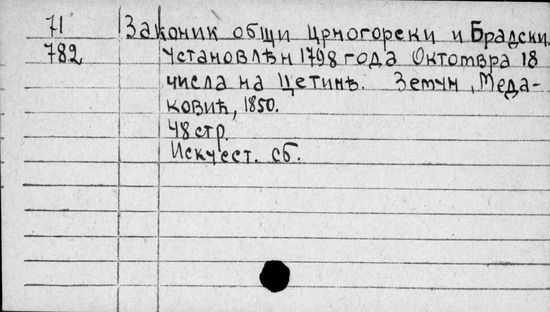 71 Законик общи црногорски и Брадски
782 установлѣн 1798 года Октомвра 18
числа на Цетинѣ. Земун, Меда-
ковић, 1850.
48 стр.
Искуест. сб.